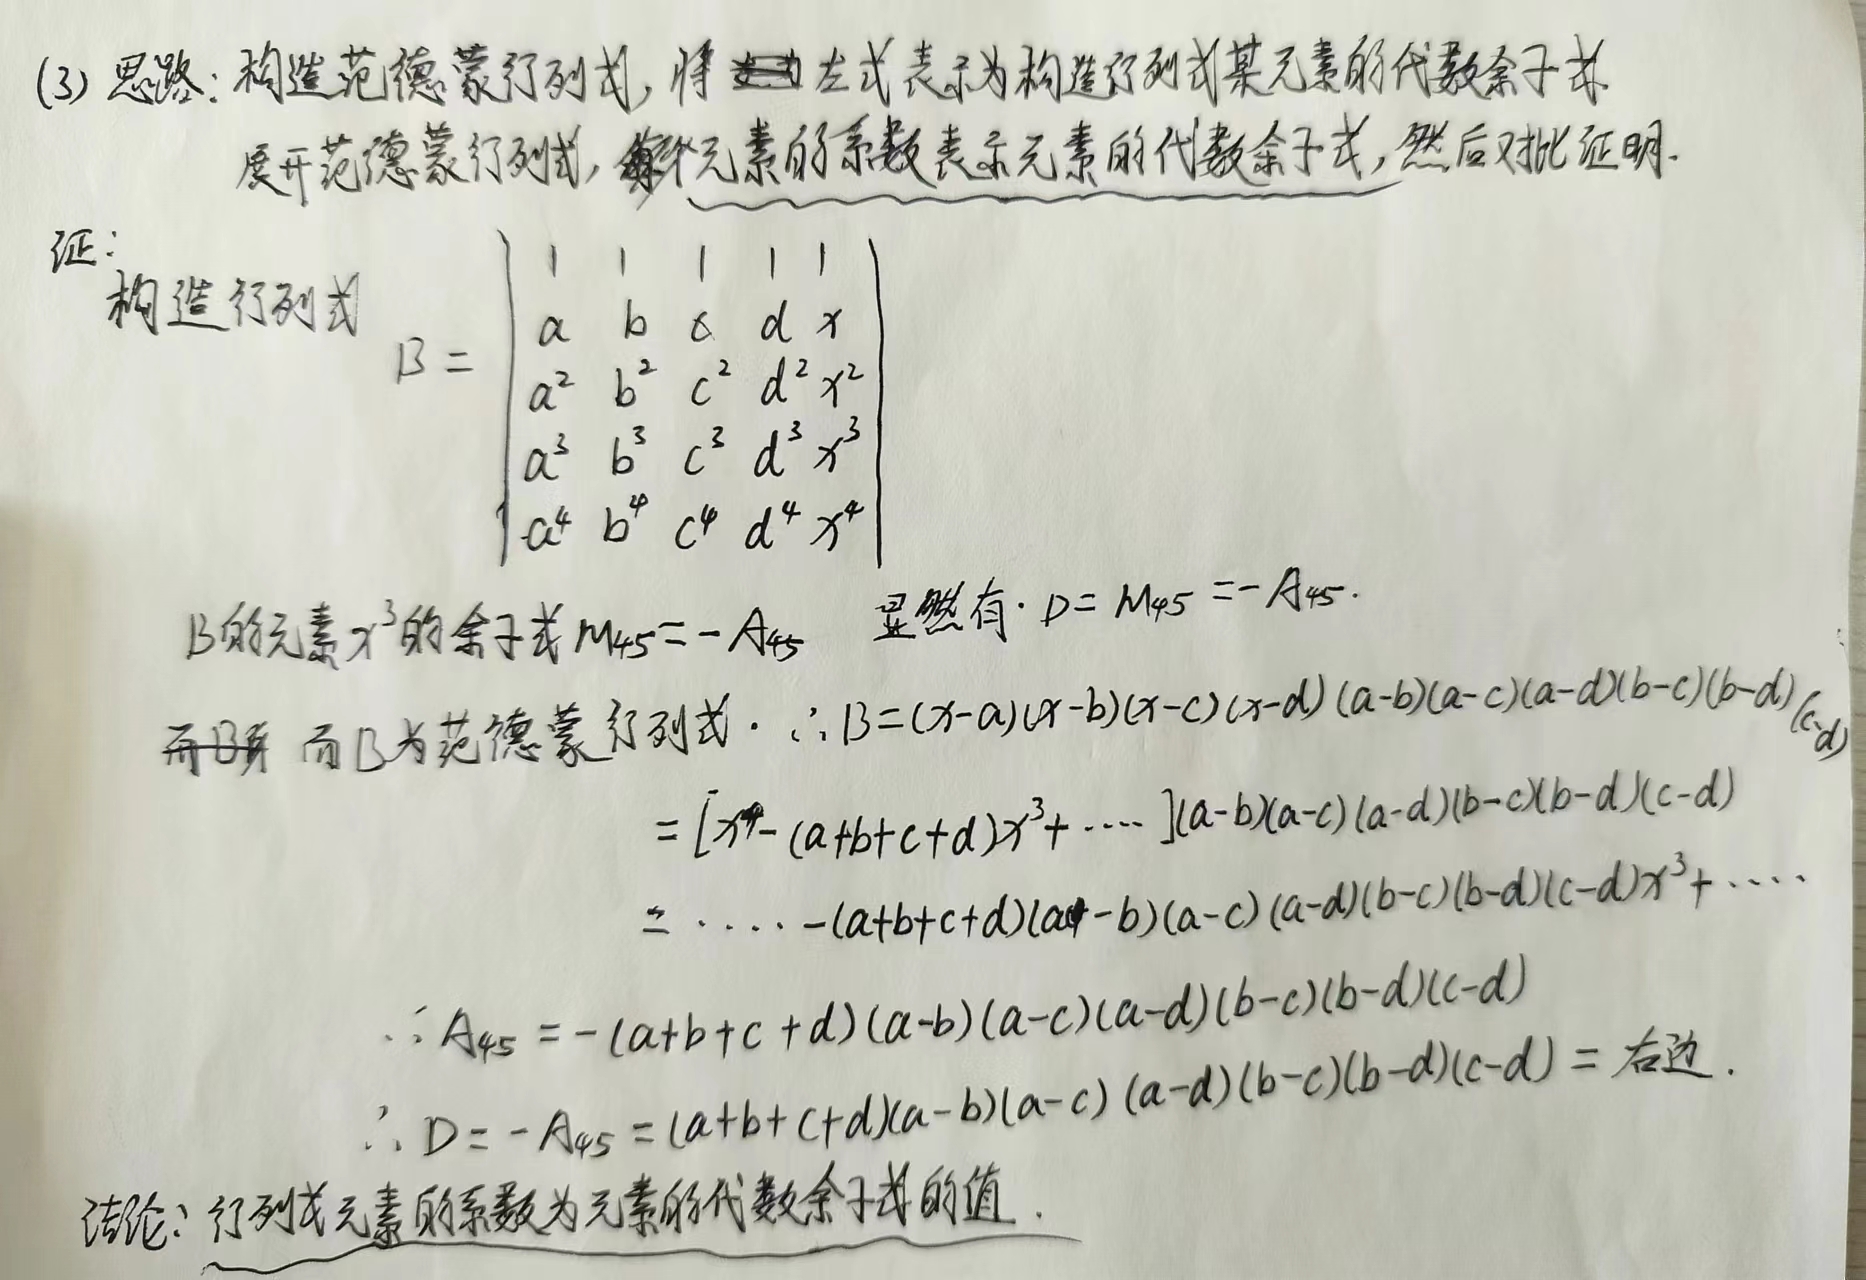 (3) 思路: 构造范德蒙行列式, 将 左式表示为构造行列式某元素的代数余子式
展开范德蒙行列式, 元素的系数表示元素的代数余子式, 然后对比证明.
证:
构造行列式
B = | 1 1 1 1 1 |
| a b c d x |
| a² b² c² d² x² |
| a³ b³ c³ d³ x³ |
| a⁴ b⁴ c⁴ d⁴ x⁴ |
B的元素x³的余子式 M₄₅ = -A₄₅ 显然有. D = M₄₅ = -A₄₅.
而B为范德蒙行列式. ∴B=(x-a)(x-b)(x-c)(x-d)(a-b)(a-c)(a-d)(b-c)(b-d)(c-d)
= [x⁴-(a+b+c+d)x³+ ····](a-b)(a-c)(a-d)(b-c)(b-d)(c-d)
= ····-(a+b+c+d)(a-b)(a-c)(a-d)(b-c)(b-d)(c-d)x³+ ····
∴ A₄₅ = -(a+b+c+d)(a-b)(a-c)(a-d)(b-c)(b-d)(c-d)
∴ D = -A₄₅ = (a+b+c+d)(a-b)(a-c)(a-d)(b-c)(b-d)(c-d) = 右边.
结论: 行列式元素的系数为元素的代数余子式的值.